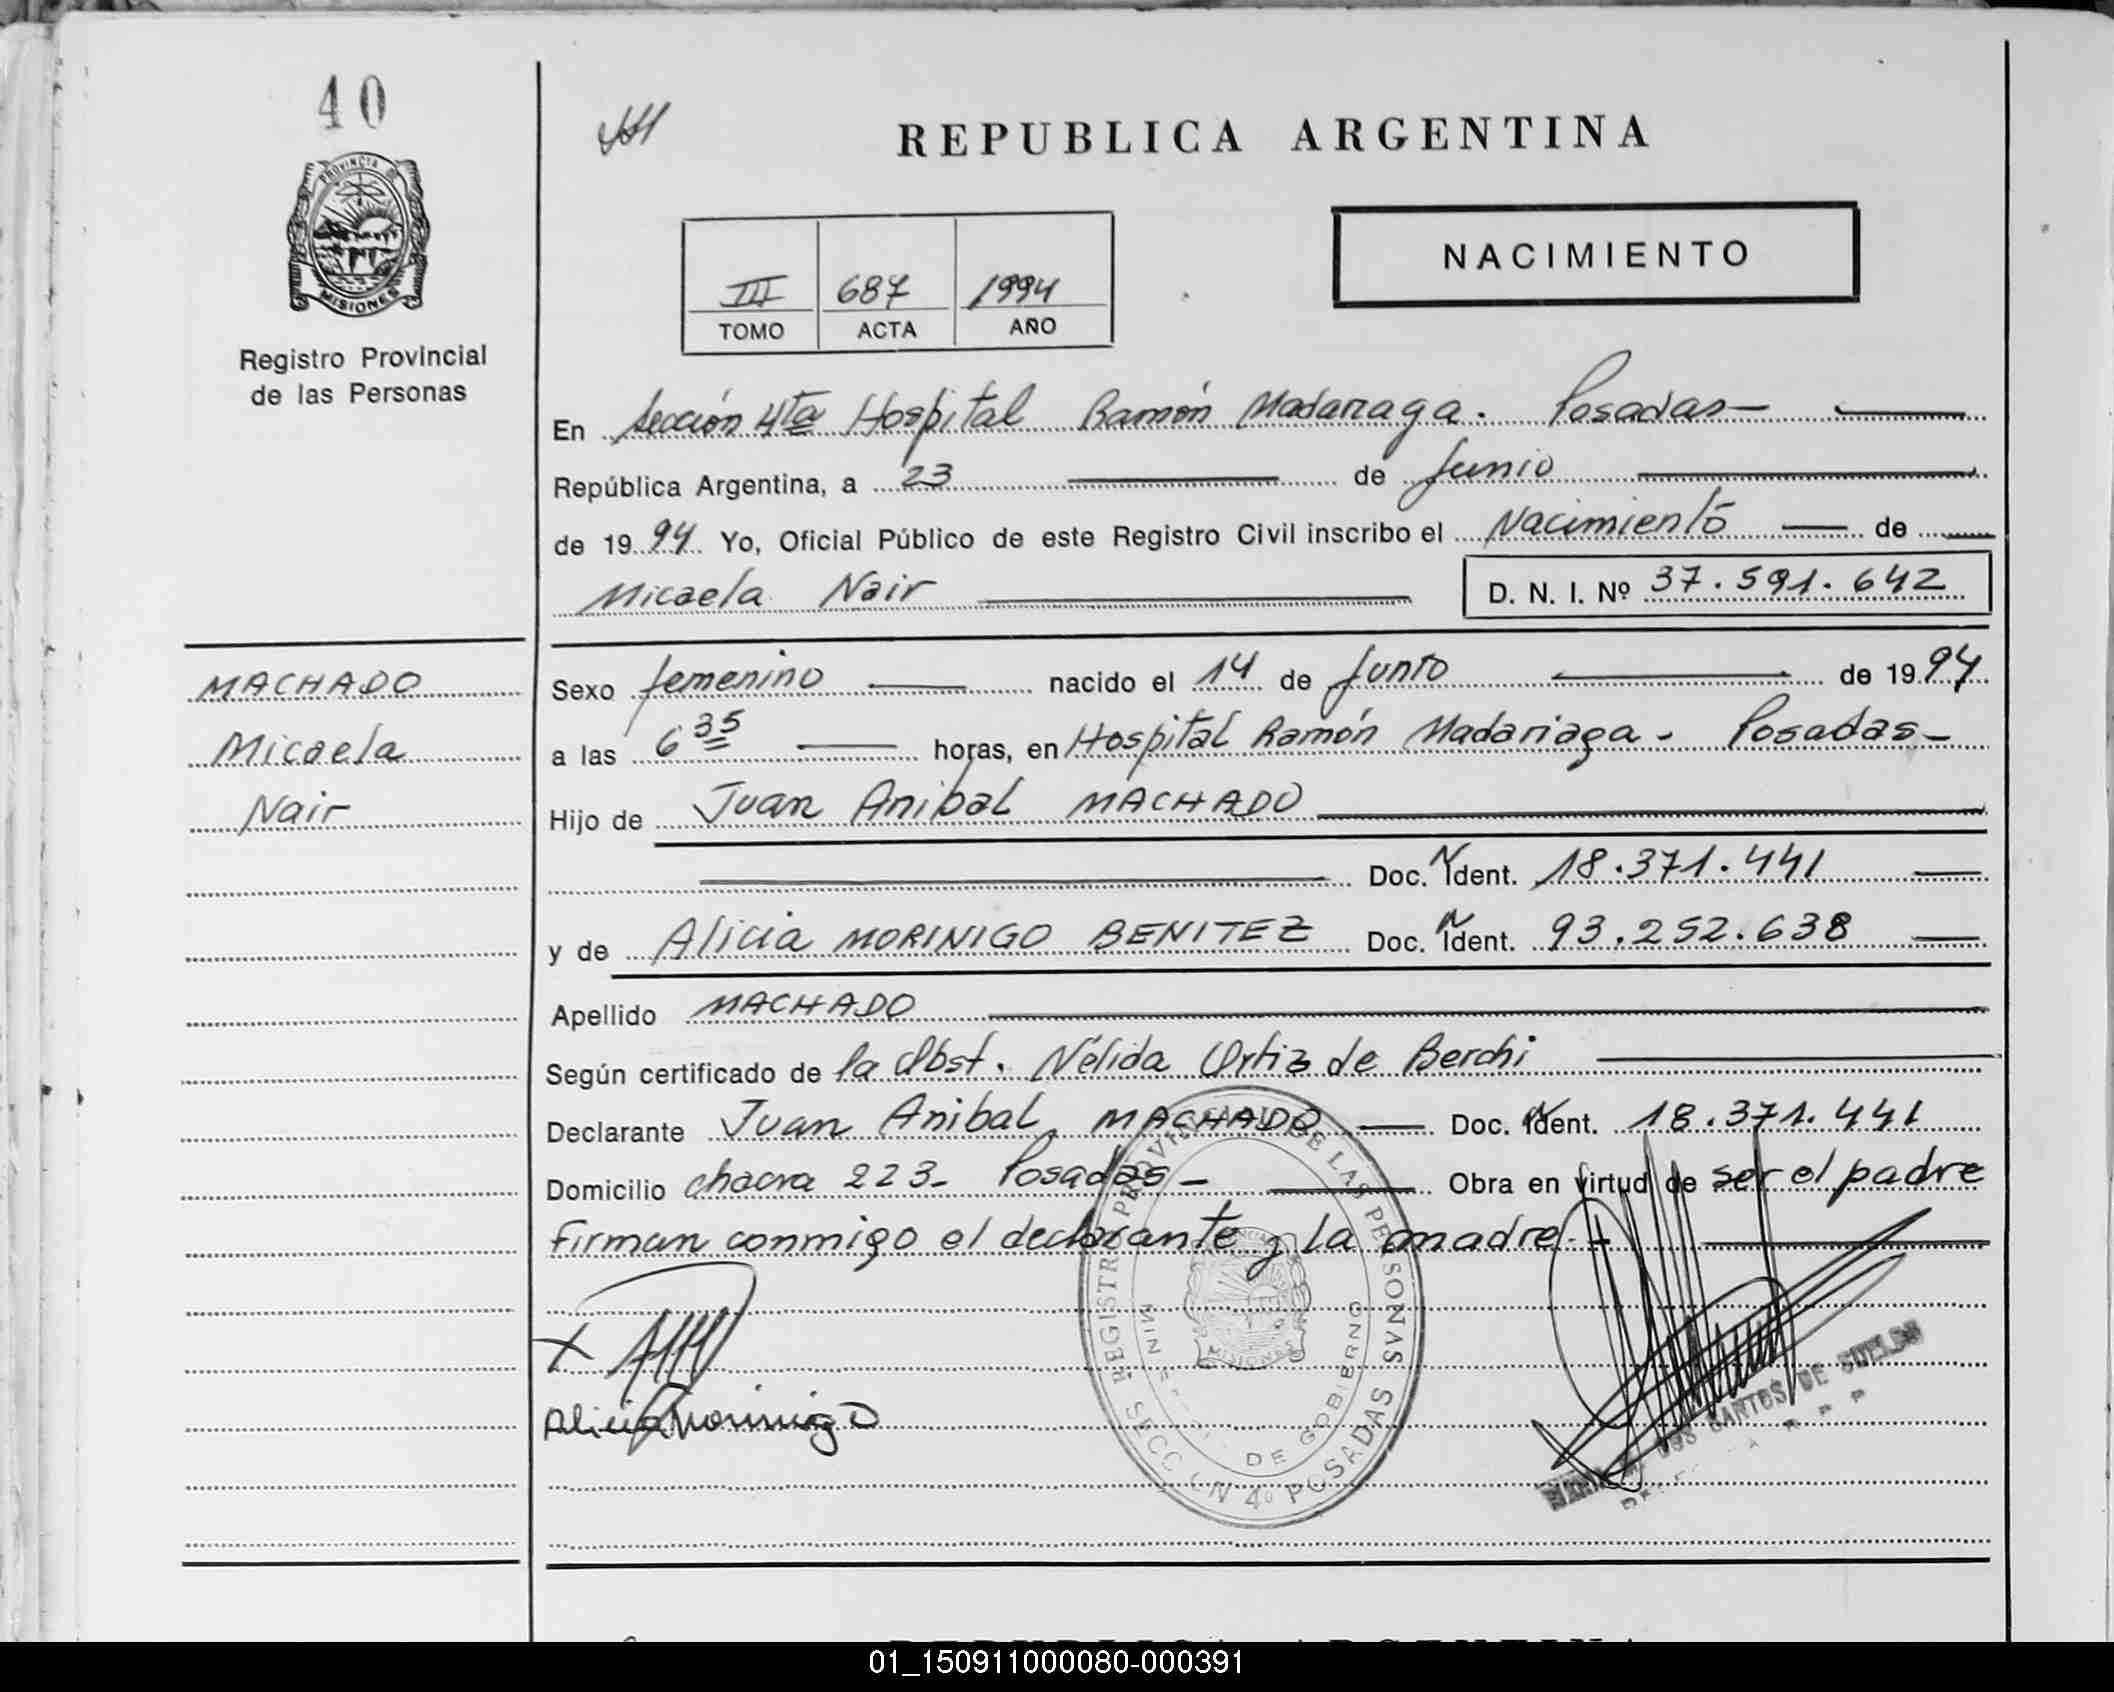 40
REPUBLICA ARGENTINA
PROVINCIA DE
MISIONES
Registro Provincial
de las Personas
NACIMIENTO
III 687 1994
TOMO ACTA AÑO
En Sección 4ta Hospital Ramón Madariaga. Posadas—
República Argentina, a 23 de Junio
de 1994 Yo, Oficial Público de este Registro Civil inscribo el Nacimiento de
Micaela Nair D. N. I. Nº 37.591.642
MACHADO
Micaela
Nair
Sexo femenino nacido el 14 de Junio de 1994
a las 6 35 horas, en Hospital Ramón Madariaga - Posadas-
Hijo de Juan Anibal MACHADO
Doc. N Ident. 18.371.441
y de Alicia MORINIGO BENITEZ Doc. N Ident. 93.252.638
Apellido MACHADO
Según certificado de la Obst. Nélida Ortiz de Berchi
Declarante Juan Anibal MACHADO Doc. N Ident. 18.371.441
Domicilio chacra 223- Posadas- Obra en virtud de ser el padre
firman conmigo el declarante y la madre.-
Alicia Morinigo
REGISTRO PROVINCIAL DE LAS PERSONAS
DE GOBIERNO
MISIONES
SECCION 4º POSADAS
DOS SANTOS DE SUELDO
REPUBLICA ARGENTINA
01_150911000080-000391